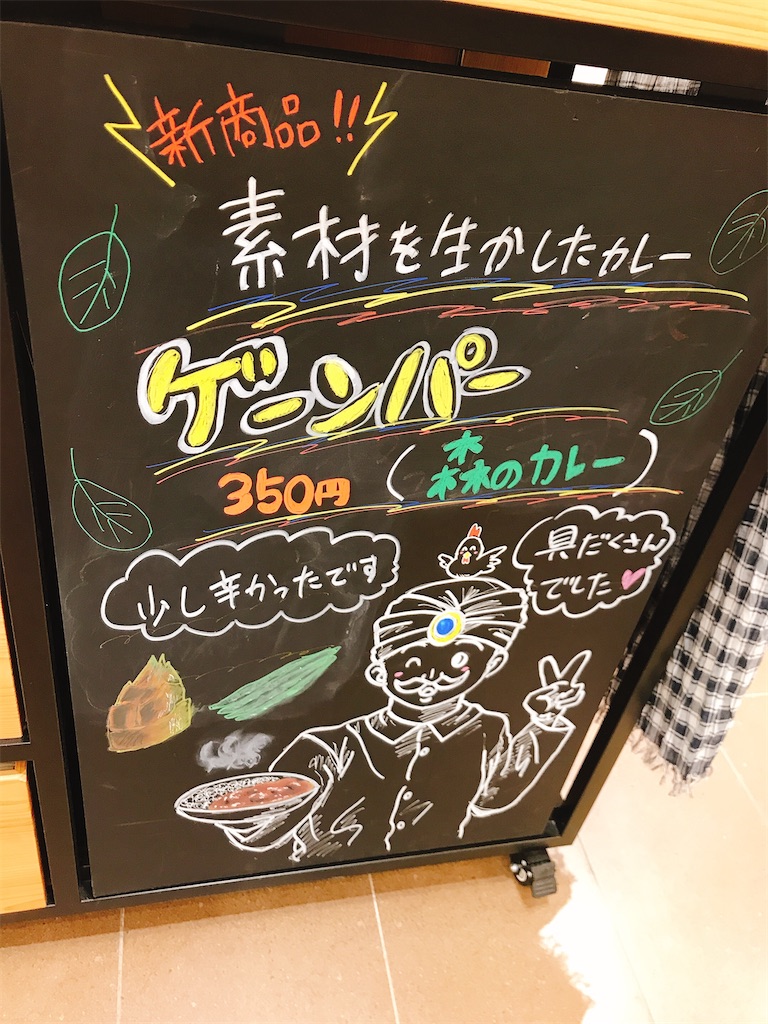 新商品!!
素材を生かしたカレー
ゲーンパー
350円
(森のカレー)
少し辛かったです
具だくさん
でした♥